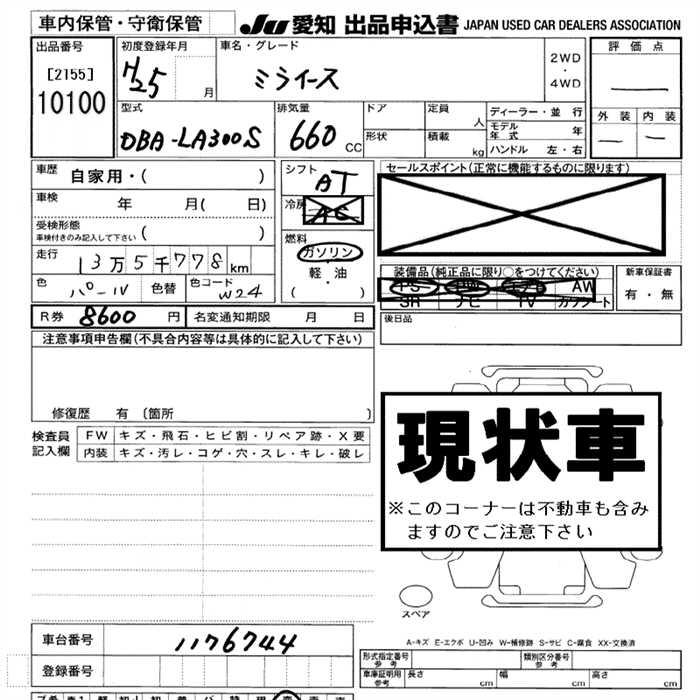 車内保管・守衛保管
JU 愛知 出品申込書 JAPAN USED CAR DEALERS ASSOCIATION
出品番号
[2155]
10100
初度登録年月
H25 月
車名・グレード
ミライース
2WD
・
4WD
評価点
外装 内装
型式
DBA-LA300S
排気量
660 CC
ドア
形状
定員 人
積載 kg
ディーラー・並行
モデル年式 年
ハンドル 左・右
車歴 自家用・( )
車検 年 月( 日)
受検形態
車検付きのみ記入して下さい ( )
走行 13万5千778km
色 パール 色替 色コード W24
シフト AT
冷房 AC
燃料
ガソリン
・
軽・油
( )
セールスポイント(正常に機能するものに限ります)
装備品(純正品に限り○をつけてください)
PS PW エアB AW
SR ナビ TV カワシート
新車保証書
有・無
R券 8600 円 名変通知期限 月 日
後日品
注意事項申告欄(不具合内容等は具体的に記入して下さい)
修復歴 有〔箇所 〕
検査員記入欄
FW キズ・飛石・ヒビ割・リペア跡・X要
内装 キズ・汚レ・コゲ・穴・スレ・キレ・破レ
現状車
※このコーナーは不動車も含み
ますのでご注意下さい
スペア
A-キズ E-エクボ U-凹み W-補修跡 S-サビ C-腐食 XX-交換済
車台番号 1176744
登録番号
形式指定番号 参考
類別区分番号 参考
車庫証明用 参考 長さ cm 幅 cm 高さ cm